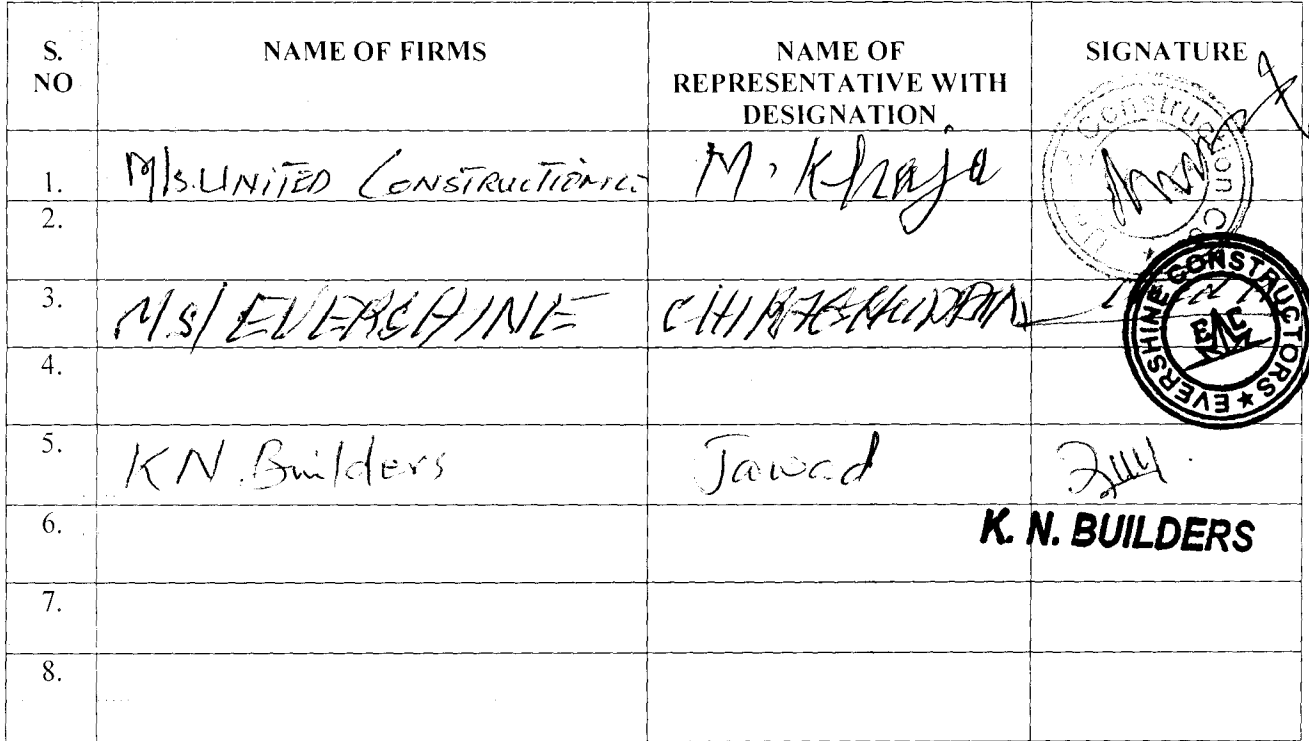 S. NO
NAME OF FIRMS
NAME OF REPRESENTATIVE WITH DESIGNATION
SIGNATURE
1. M/s. UNITED CONSTRUCTION M. Khaja
Construction Co
2.
3. M/s/ EVERSHINE
EVERSHINE CONSTRUCTORS ★
4.
5. KN. Builders Jawad
6. K. N. BUILDERS
7.
8.